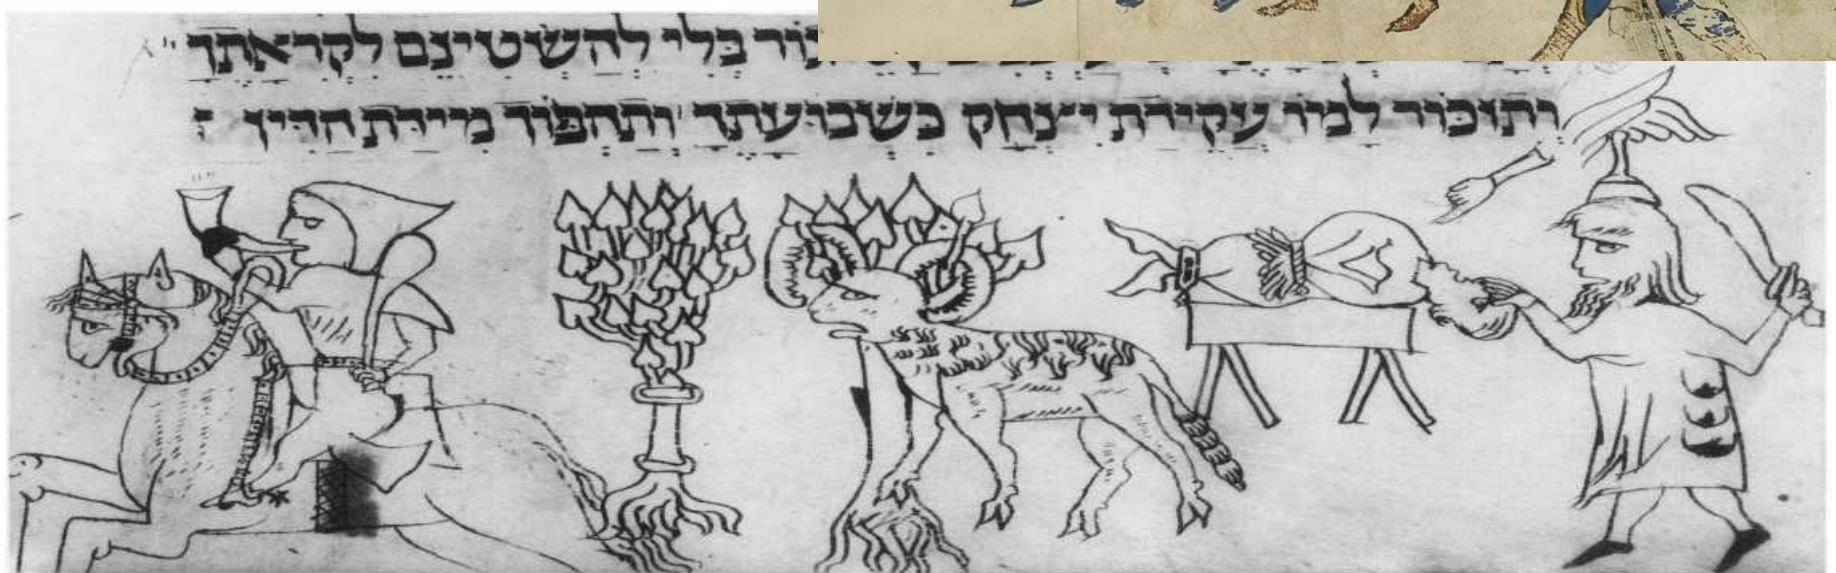 בלי להשטינם לקראתך
ותזכור למו עקידת יצחק כשבועתך ותהפוך מיידת הדין :